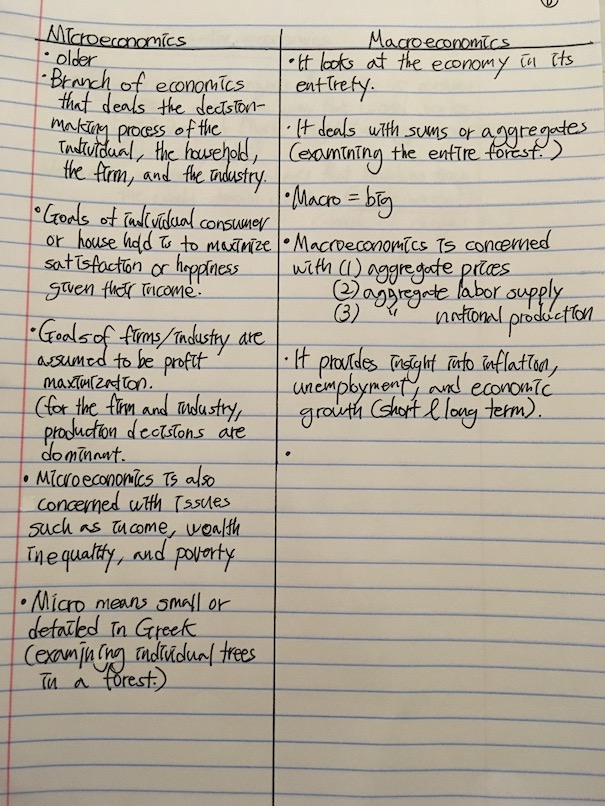 Microeconomics
• older
• Branch of economics
that deals the decision-
making process of the
individual, the household,
the firm, and the industry.
• Goals of individual consumer
or house hold is to maximize
satisfaction or happiness
given their income.
• Goals of firms/industry are
assumed to be profit
maximization.
(for the firm and industry,
production decisions are
dominant.
• Microeconomics is also
concerned with issues
such as income, wealth
inequality, and poverty
• Micro means small or
detailed in Greek
(examining individual trees
in a forest.)
Macroeconomics
• It looks at the economy in its
entirety.
• It deals with sums or aggregates
(examining the entire forest.)
• Macro = big
• Macroeconomics is concerned
with (1) aggregate prices
(2) aggregate labor supply
(3) " national production
• It provides insight into inflation,
unemployment, and economic
growth (short & long term).
•